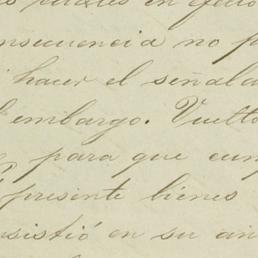 en efecto
nsecuencia no p
hacer el señala
embargo. Vuelto
para que cum
presente bienes
nsistió en su an